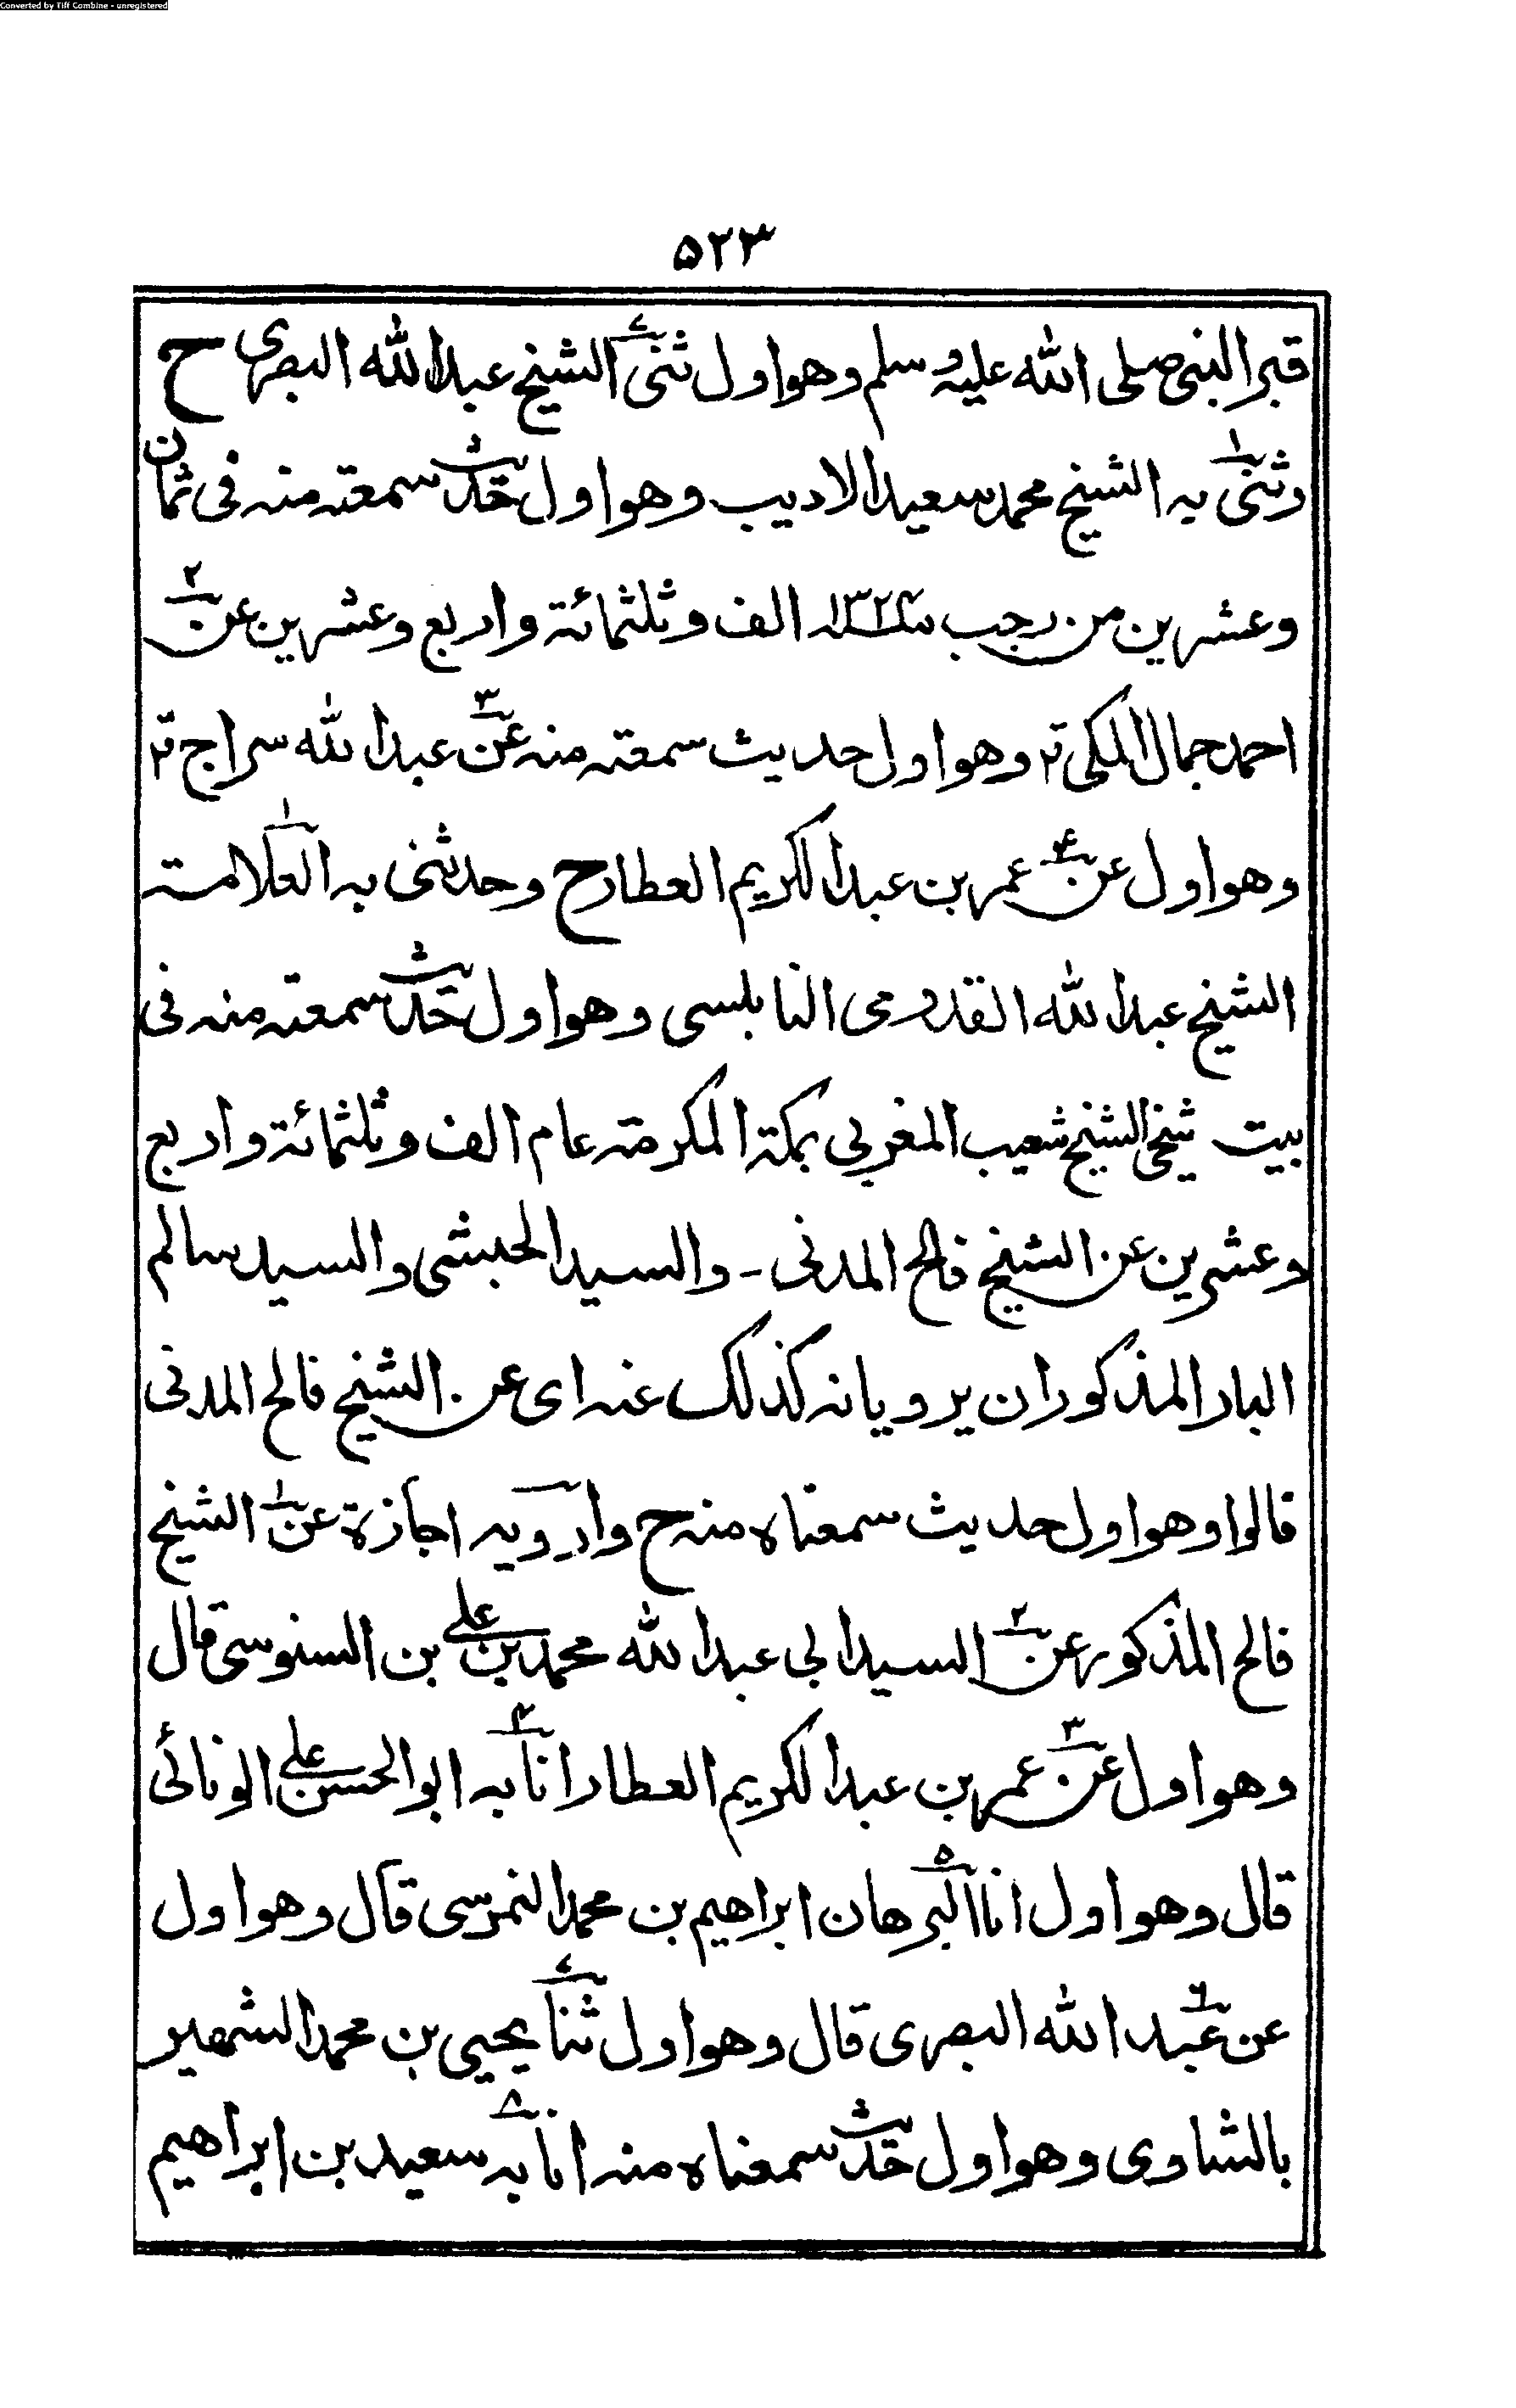 Converted by Tiff Combine - unregistered
۵۲۳
قبر النبی صلی الله علیہ وسلم وهو اول ثنی الشیخ عبد الله البصری ح
وثنی بہ الشیخ محمد سعید الادیب وهو اول حدیث سمعتہ منہ فی ثمان
وعشرین من رجب سنہ ۱۳۲۴ الف وثلثمائۃ واربع وعشرین عن ۲
احمد جمال المکی وهو اول حدیث سمعتہ منہ عن ۳ عبد الله سراج
وهو اول عن ۴ عمر بن عبد الکریم العطار ح وحدثنی بہ العلامۃ
الشیخ عبد الله القدومی النابلسی وهو اول حدیث سمعتہ منہ فی
بیت شیخی الشیخ شعیب المغربی بمکۃ المکرمۃ عام الف وثلثمائۃ واربع
وعشرین عن الشیخ فالح المدنی - والسید الحبشی والسید سالم
البار المذکوران یرویانہ کذلک عنہ ای عن الشیخ فالح المدنی
قالوا وهو اول حدیث سمعناہ منہ ح وارویہ اجازۃ عن ۱ الشیخ
فالح المذکور عن ۲ السید ابی عبد الله محمد بن علی بن السنوسی قال
وهو اول عن ۳ عمر بن عبد الکریم العطار انا بہ ۴ ابو الحسن علی الونائی
قال وهو اول انا ۵ البرهان ابراهیم بن محمد النمرسی قال وهو اول
عن ۶ عبد الله البصری قال وهو اول ثنا ۷ یحیی بن محمد الشهیر
بالشاوی وهو اول حدیث سمعناہ منہ انا بہ ۸ سعید بن ابراهیم